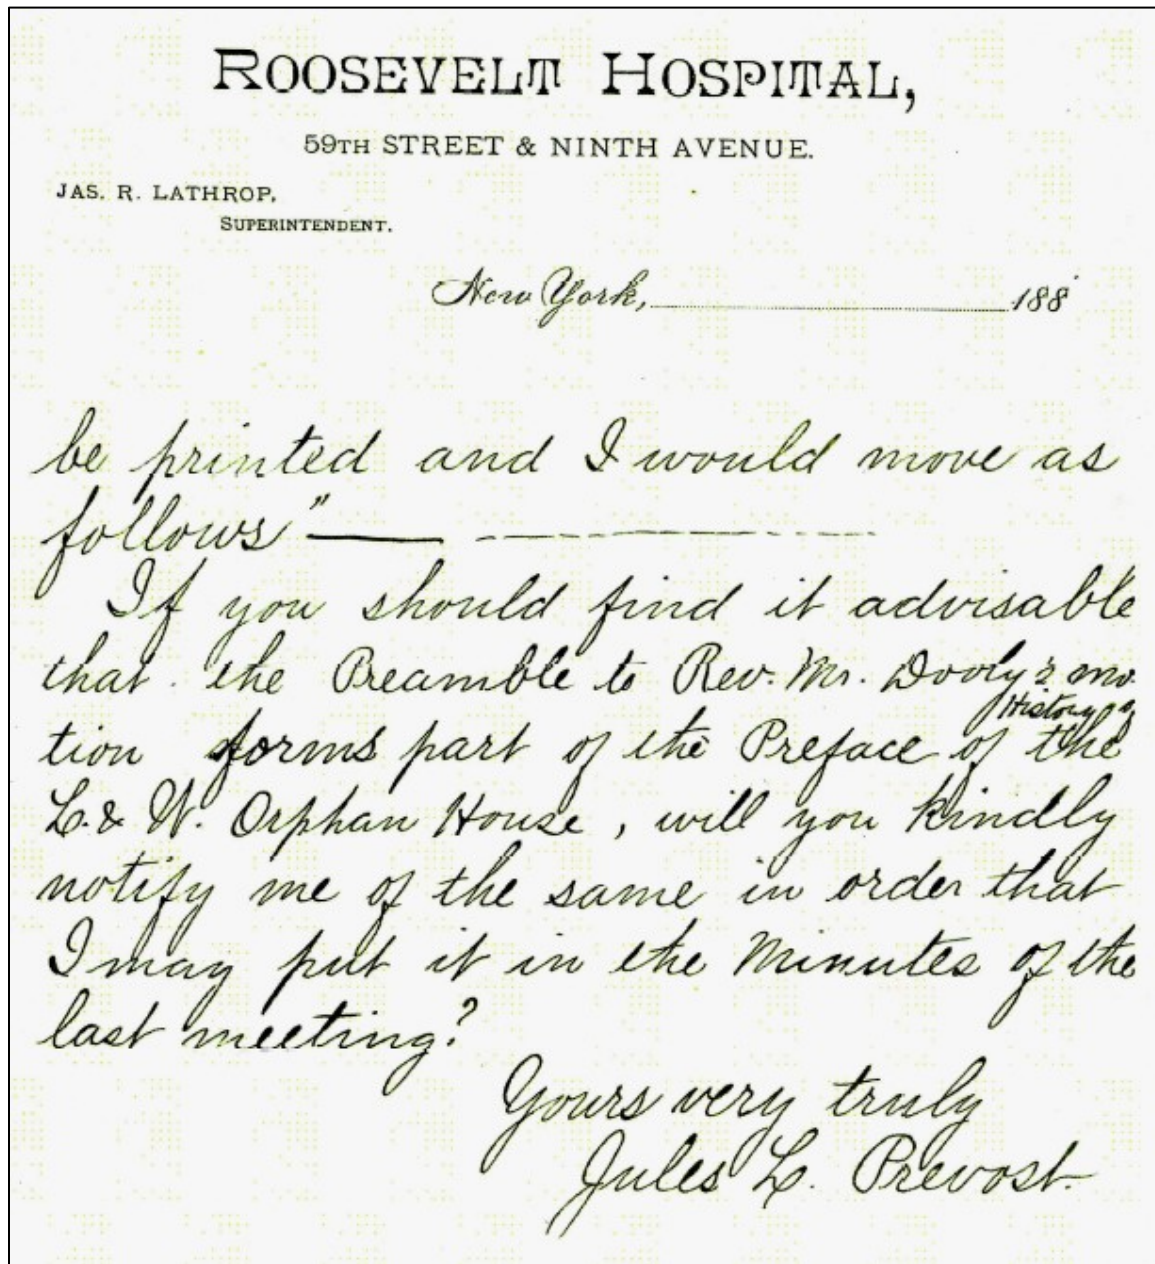 ROOSEVELT HOSPITAL,
59TH STREET & NINTH AVENUE.
JAS. R. LATHROP,
SUPERINTENDENT.
New York, 188
be printed and I would move as
follows"
If you should find it advisable
that the Preamble to Rev. Mr. Dooly's mo-
History of
tion forms part of the Preface of the
L. & W. Orphan House, will you kindly
notify me of the same in order that
I may put it in the Minutes of the
last meeting?
Yours very truly
Jules L. Prevost.